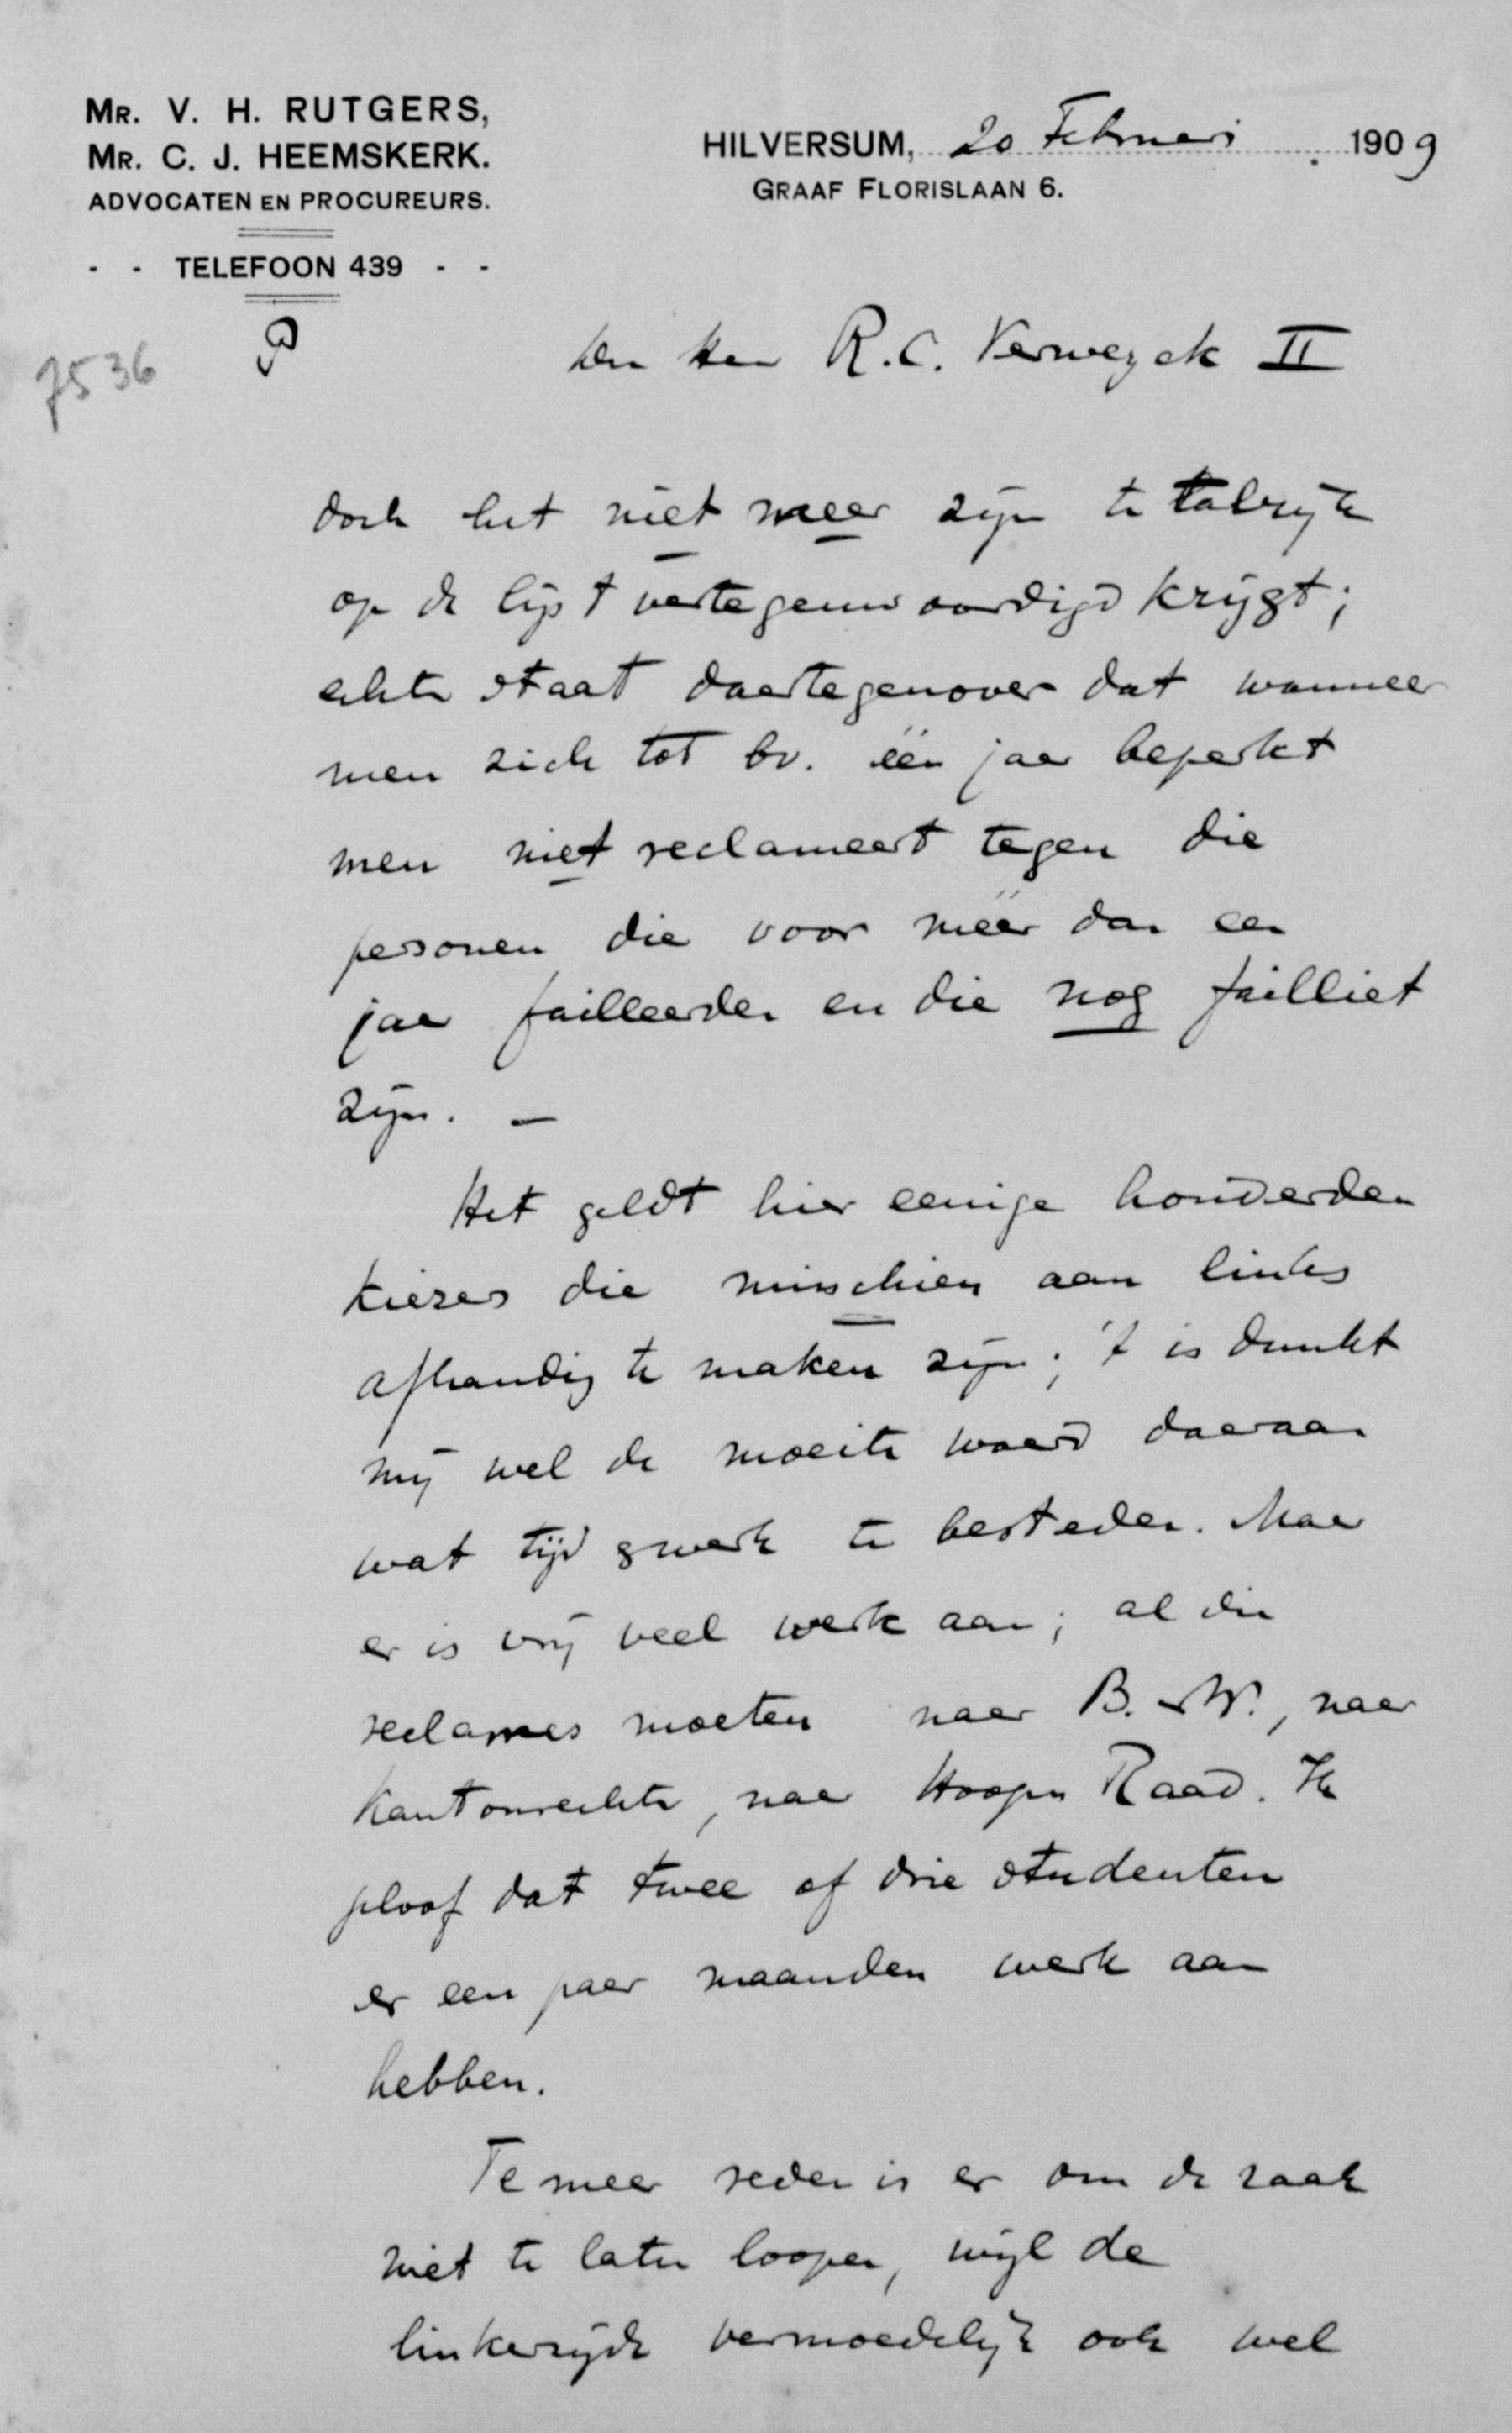 MR. V. H. RUTGERS,
MR. C. J. HEEMSKERK.
ADVOCATEN EN PROCUREURS.
- - TELEFOON 439 - -
HILVERSUM, 20 Februari 1909
GRAAF FLORISLAAN 6.
7536
den heer R.C. Verweyck II
doch het niet meer zijn te talrijk
op de lijst vertegenwoordigd krijgt;
echter staat daartegenover dat wanneer
men zich tot bv. één jaar beperkt
men niet reclameert tegen die
personen die voor méér dan een
jaar failleerden en die nog failliet
zijn. —
Het geldt hier eenige honderden
kiezers die misschien aan links
afhandig te maken zijn; 't is dunkt
mij wel de moeite waard daaraan
wat tijd & werk te besteden. Maar
er is vrij veel werk aan; al die
reclames moeten naar B. & W., naar
Kantonrechter, naar Hoogen Raad. Ik
geloof dat twee of drie studenten
er een paar maanden werk aan
hebben.
Te meer reden is er om de zaak
niet te laten loopen, wijl de
linkerzijde vermoedelijk ook wel